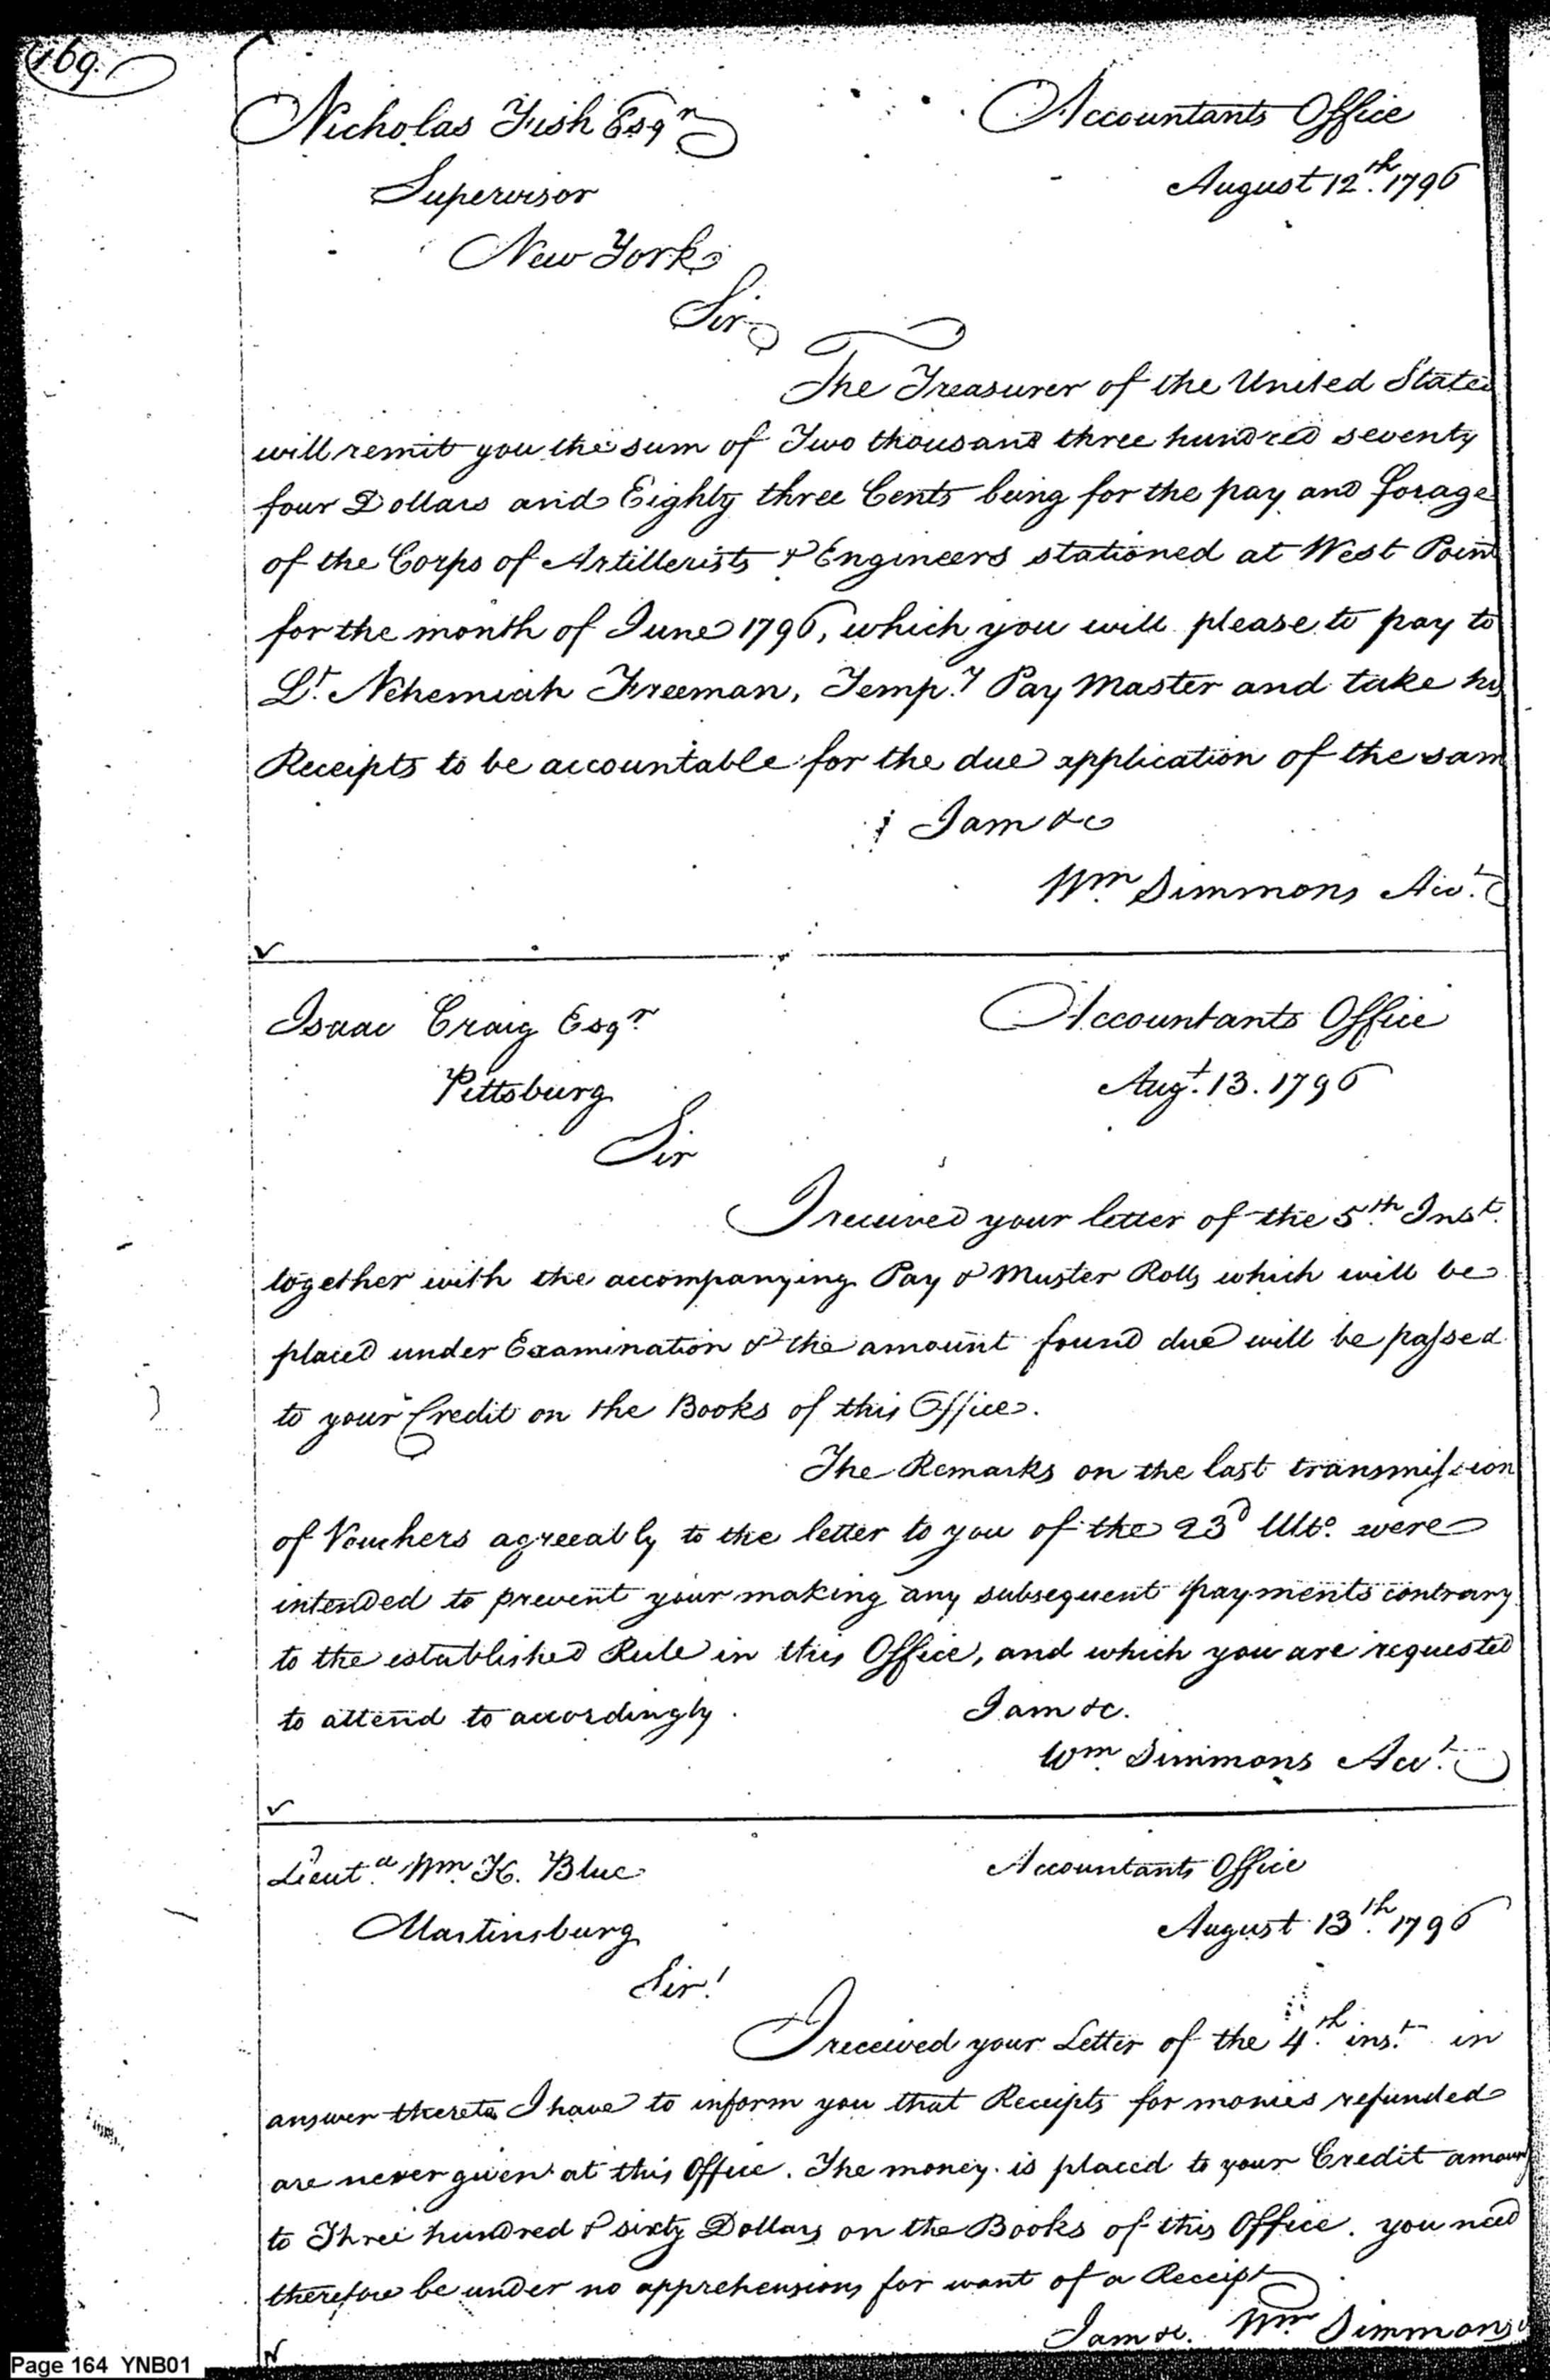 169.
Nicholas Fish Esqr
Accountants Office
Supervisor
August 12th. 1796
New York
Sir
The Treasurer of the United States
will remit you the sum of Two thousand three hundred seventy
four Dollars and Eighty three Cents being for the pay and forage
of the Corps of Artillerists & Engineers stationed at West Point
for the month of June 1796, which you will please to pay to
Lt. Nehemiah Freeman, Temp.y Pay Master and take his
Receipts to be accountable for the due application of the sam
I am &c
Wm. Simmons Acct.
Isaac Craig Esqr.
Accountants Office
Pittsburg
Augt. 13. 1796
Sir
I received your letter of the 5th. Inst.
together with the accompanying Pay & Muster Rolls which will be
placed under Examination & the amount found due will be passed
to your Credit on the Books of this Office.
The Remarks on the last transmission
of Vouchers agreeably to the letter to you of the 23d Ulto. were
intended to prevent your making any subsequent payments contrary
to the established Rule in this Office, and which you are requested
to attend to accordingly.
I am &c.
Wm. Simmons Acct.
Lieut. Wm. K. Blue
Accountants Office
Martinsburg
August 13th. 1796
Sir!
I received your Letter of the 4th. inst. in
answer thereto I have to inform you that Receipts for monies refunded
are never given at this Office. The money is placed to your Credit amount
to Three hundred & sixty Dollars on the Books of this Office. you need
therefore be under no apprehensions for want of a Receipt
I am &c. Wm. Simmons
Page 164 YNB01